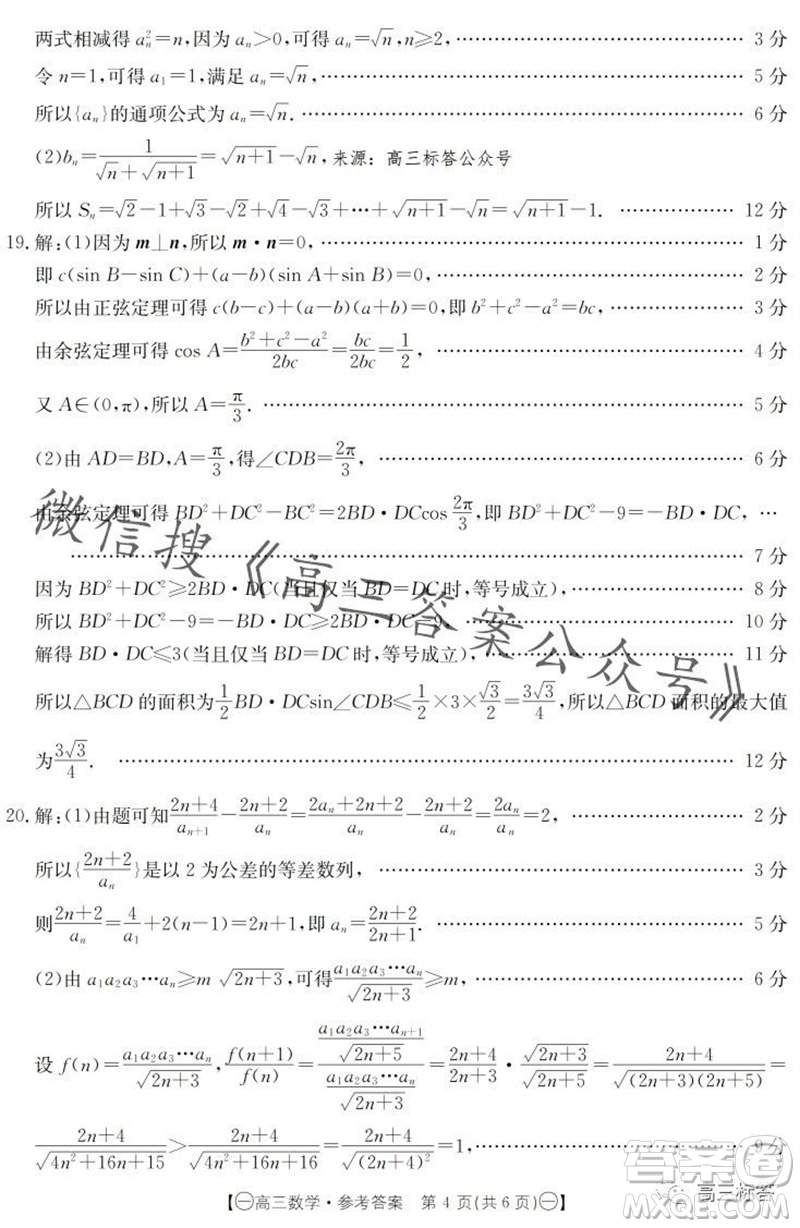 两式相减得 aₙ²=n,因为 aₙ>0,可得 aₙ=√n,n≥2, …… 3 分
令 n=1,可得 a₁=1,满足 aₙ=√n, …… 5 分
所以{aₙ}的通项公式为 aₙ=√n. …… 6 分
(2)bₙ=1/(√n+√(n+1))=√(n+1)-√n, 来源:高三标答公众号
所以 Sₙ=√2-1+√3-√2+√4-√3+…+√(n+1)-√n=√(n+1)-1. …… 12 分
19. 解:(1)因为 m⊥n,所以 m·n=0, …… 1 分
即 c(sin B-sin C)+(a-b)(sin A+sin B)=0, …… 2 分
所以由正弦定理可得 c(b-c)+(a-b)(a+b)=0,即 b²+c²-a²=bc, …… 3 分
由余弦定理可得 cos A=(b²+c²-a²)/2bc=bc/2bc=1/2, …… 4 分
又 A∈(0,π),所以 A=π/3. …… 5 分
(2)由 AD=BD,A=π/3,得∠CDB=2π/3, …… 6 分
由余弦定理可得 BD²+DC²-BC²=2BD·DCcos 2π/3,即 BD²+DC²-9=-BD·DC, …
…… 7 分
因为 BD²+DC²≥2BD·DC(当且仅当 BD=DC 时,等号成立), …… 8 分
所以 BD²+DC²-9=-BD·DC≥2BD·DC-9, …… 10 分
解得 BD·DC≤3(当且仅当 BD=DC 时,等号成立), …… 11 分
所以△BCD 的面积为1/2 BD·DCsin∠CDB≤1/2×3×√3/2=3√3/4,所以△BCD 面积的最大值
为3√3/4. …… 12 分
20. 解:(1)由题可知(2n+4)/aₙ₊₁-(2n+2)/aₙ=(2aₙ+2n+2)/aₙ-(2n+2)/aₙ=2aₙ/aₙ=2, …… 2 分
所以{(2n+2)/aₙ}是以 2 为公差的等差数列, …… 3 分
则(2n+2)/aₙ=4/a₁+2(n-1)=2n+1,即 aₙ=(2n+2)/(2n+1). …… 5 分
(2)由 a₁a₂a₃…aₙ≥m √(2n+3),可得(a₁a₂a₃…aₙ)/√(2n+3)≥m, …… 6 分
设 f(n)=(a₁a₂a₃…aₙ)/√(2n+3),f(n+1)/f(n)=((a₁a₂a₃…aₙ₊₁)/√(2n+5))/((a₁a₂a₃…aₙ)/√(2n+3))=(2n+4)/(2n+3)·√(2n+3)/√(2n+5)=(2n+4)/√((2n+3)(2n+5))=
(2n+4)/√(4n²+16n+15)>(2n+4)/√(4n²+16n+16)=(2n+4)/√((2n+4)²)=1, …… 9 分
【㊀高三数学·参考答案 第 4 页(共 6 页)㊀】
微信搜《高三答案公众号》
答案圈
高三标答